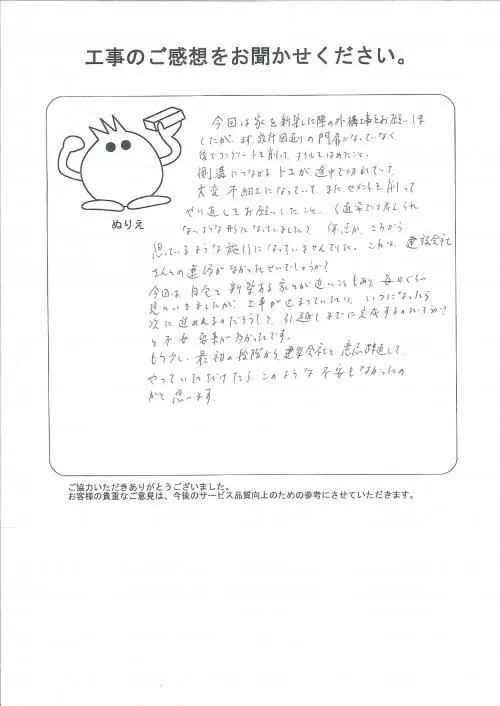 工事のご感想をお聞かせください。
今回は家を新築した際の外構工事をお願いしま
したが、まず、設計図通りの門扉になっていなく、
後でコンクリートを削って、タイルをはめたこと。
側溝につながるトイが途中で切れていて、
大変、不細工になっていて、また、セメントを削って
やり直しをお願いしたこと。(通常では考えられ
ないような形になっていました?
思っているような施行になっていませんでした。これは、建設会社
さんとの連絡がなかったせいでしょうか?
今回は自宅と新築する家とが近いこともあり、毎日ぐらい
見にいきましたが、工事が止まっていたり、いつになったら
次に進めるのだろう?、引越しまでに完成するのだろうか?
と不安要素が多かったです。
もう少し、最初の段階から、建築会社と意思疎通して、
やっていただけたらこのような不安もなかったの
かと思います。
ぬりえ
ご協力いただきありがとうございました。
お客様の貴重なご意見は、今後のサービス品質向上のための参考にさせていただきます。